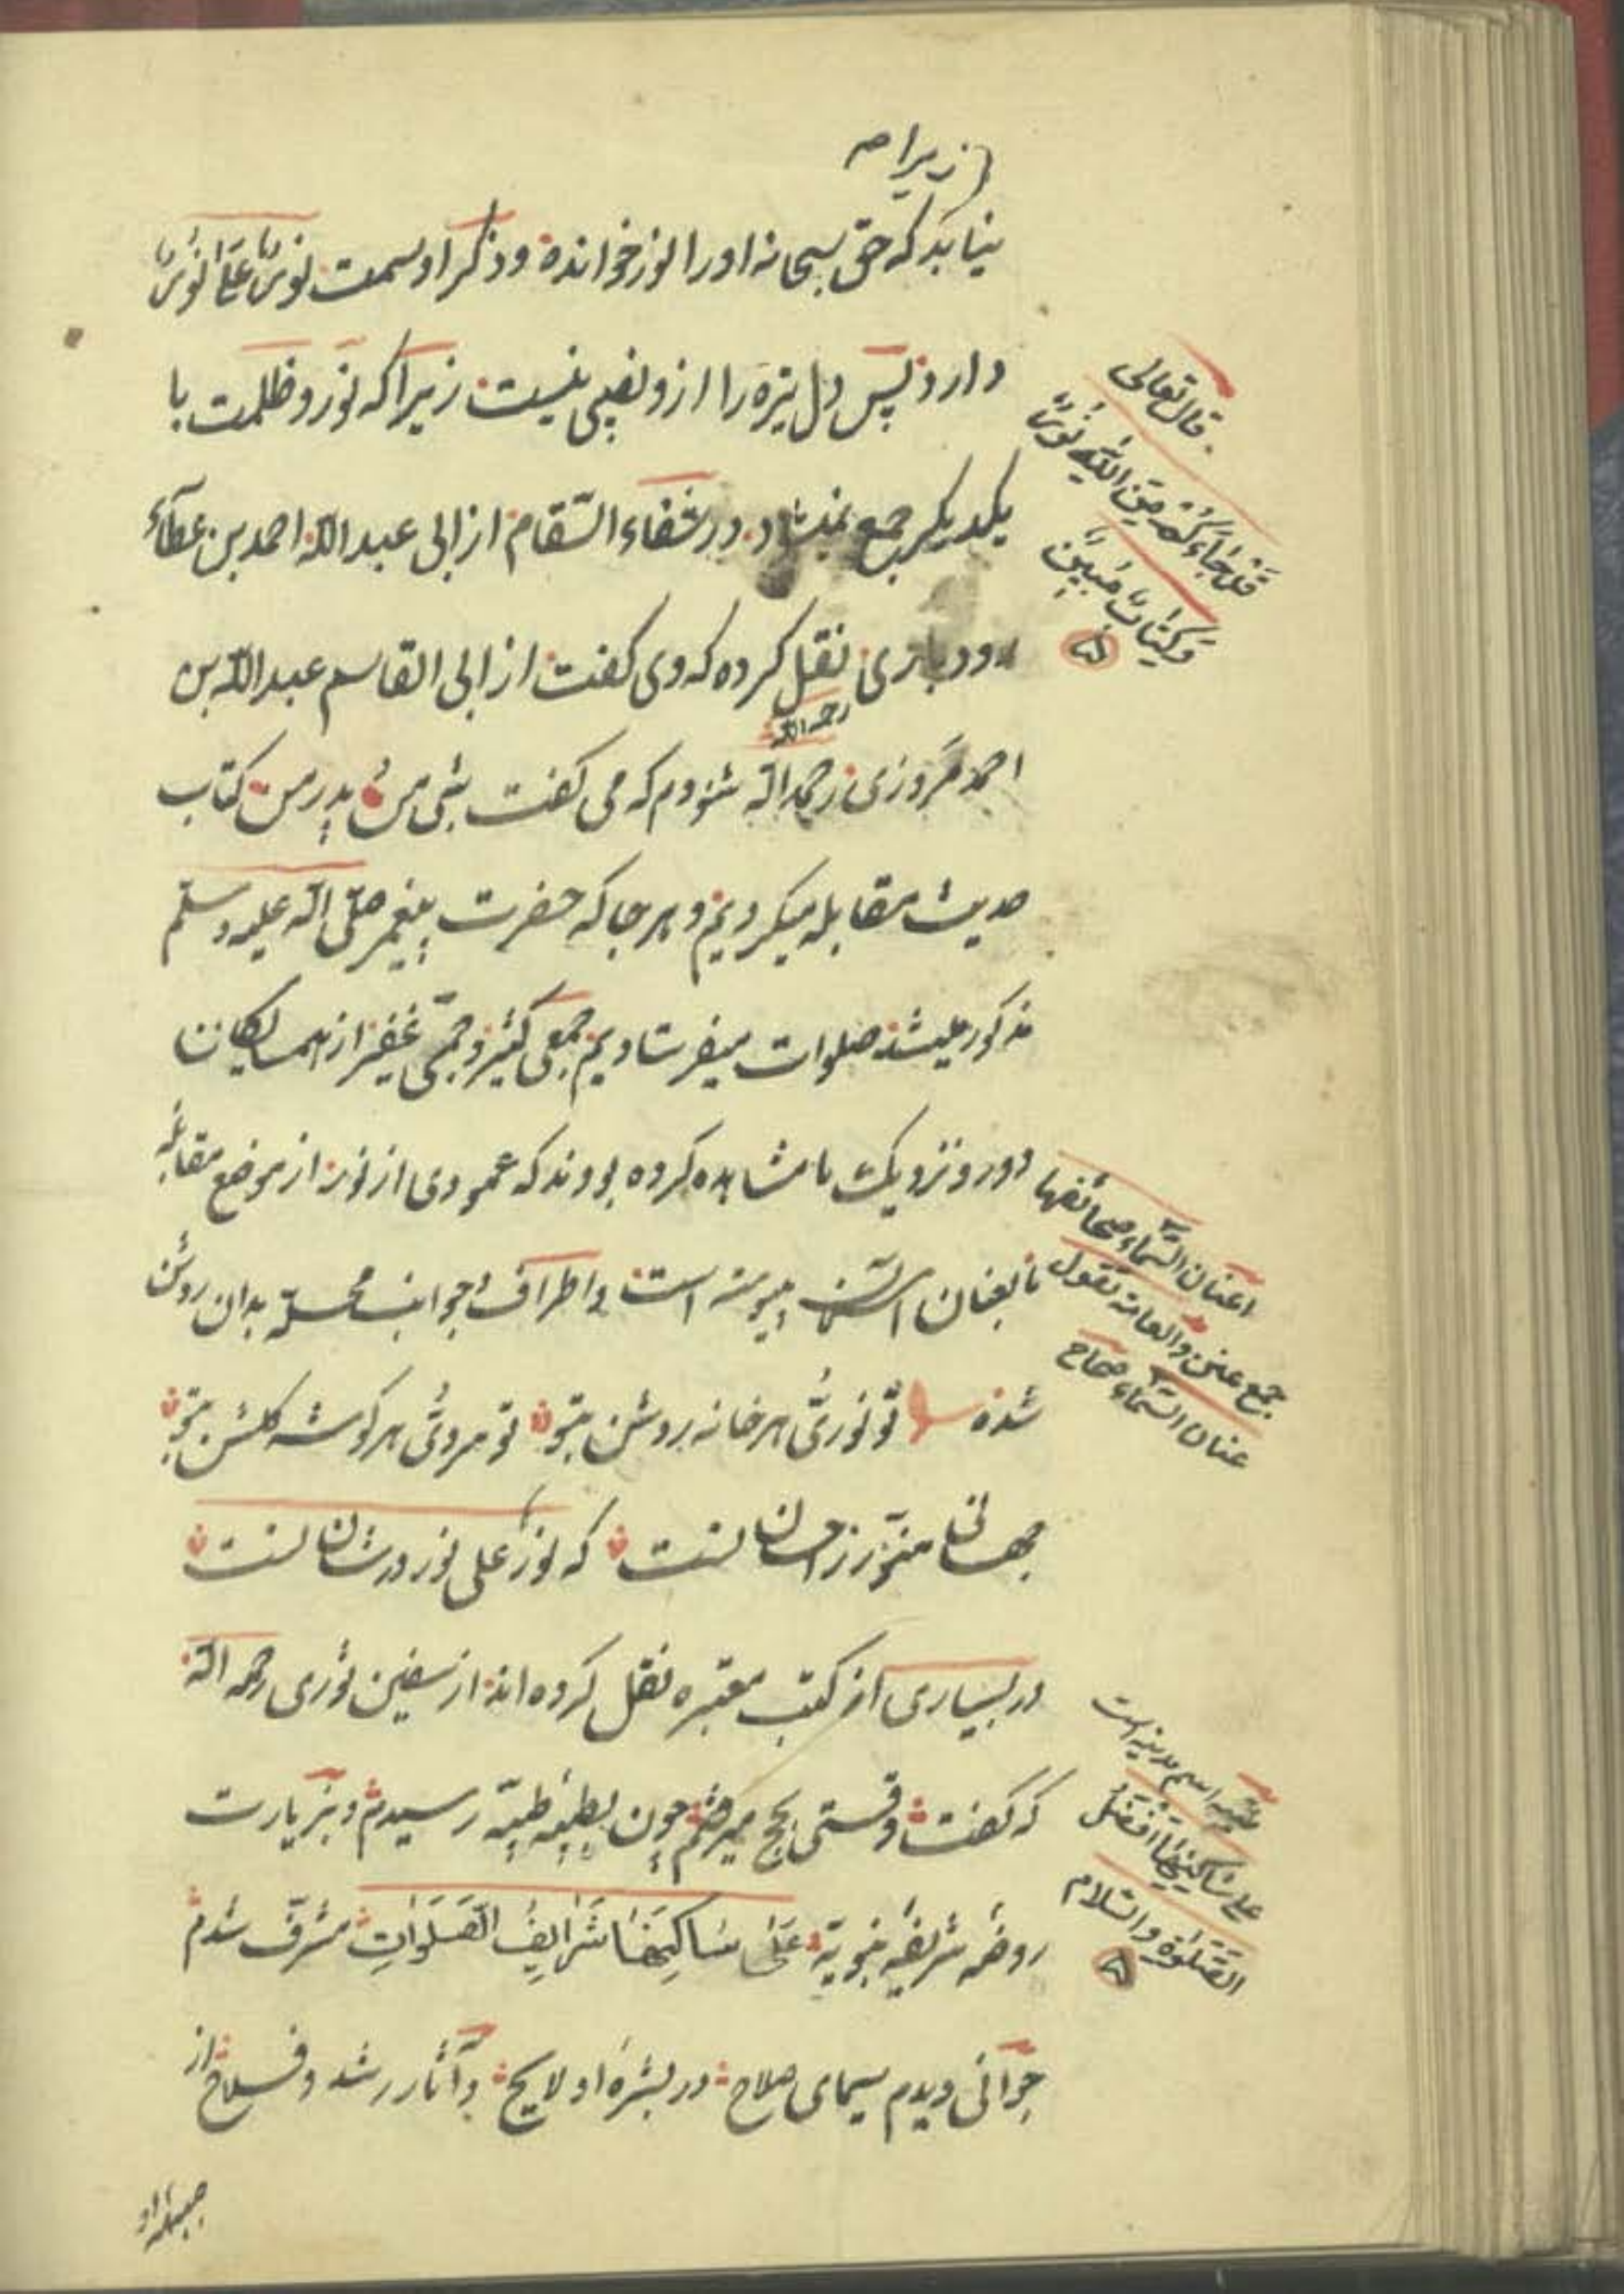 زیرا ص
نیابد که حق سبحانه اورا نور خوانده و ذکر او سمت نورٌ علیٰ نورٌ
دارد پس دل تیره را ازو نصیبی نیست زیرا که نور و ظلمت با
یکدیکر جمع نمیشود در شفاء السّقام از ابی عبد اللّه احمد بن عطآء
رودباری نقل کرده که وی کفت از ابی القاسم عبد اللّه بن
رحمه اللّه
احمد مَروزی رحمه اللّه شنودم که می کفت شبی من و پدر من کتاب
حدیث مقابله میکردیم و هر جا که حضرت پیغمبر صلّی اللّه علیه وسلّم
مذکور میشد صلوات میفرستادیم جمعی کثیر و جمّی غفیر از همسایکان
دور و نزدیک ما مشاهده کرده بودند که عمودی از نور از موضع مقابله
تا بعنان السّما پیوسته است و اطراف و جوانب محلّه بدان روشن
شده تو نوری هر خانه روشن بتو تو مروئی هر کوشه کلشن بتو
جهانی منوّر ز احسان تست که نورٌ علی نور در شان تست
در بسیاری از کتب معتبره نقل کرده اند از سفین ثوری رحمه اللّه
که کفت وقتی بحج میرفتم چون بطیبه طیّبه رسیدم و بزیارت
روضه شریفه نبویّه عَلیٰ سَاکِنِهَا شَرَایِفُ الصَّلَوَاتِ مشرّف شدم
جوانی دیدم سیمای صلاح در بشره او لایح و آثار رشد و فلاح از
قال تعالی
قَدْ جَاءَکُمْ مِنَ اللّٰهِ نُورٌ
وَکِتَابٌ مُبِینٌ
اعنان السّماء صحائفها
جمع عنن والعامه تقول
عنان السّماء صحاح
طیبه اسم مدینه است
علی ساکنیها افضل
الصّلوٰة والسّلام